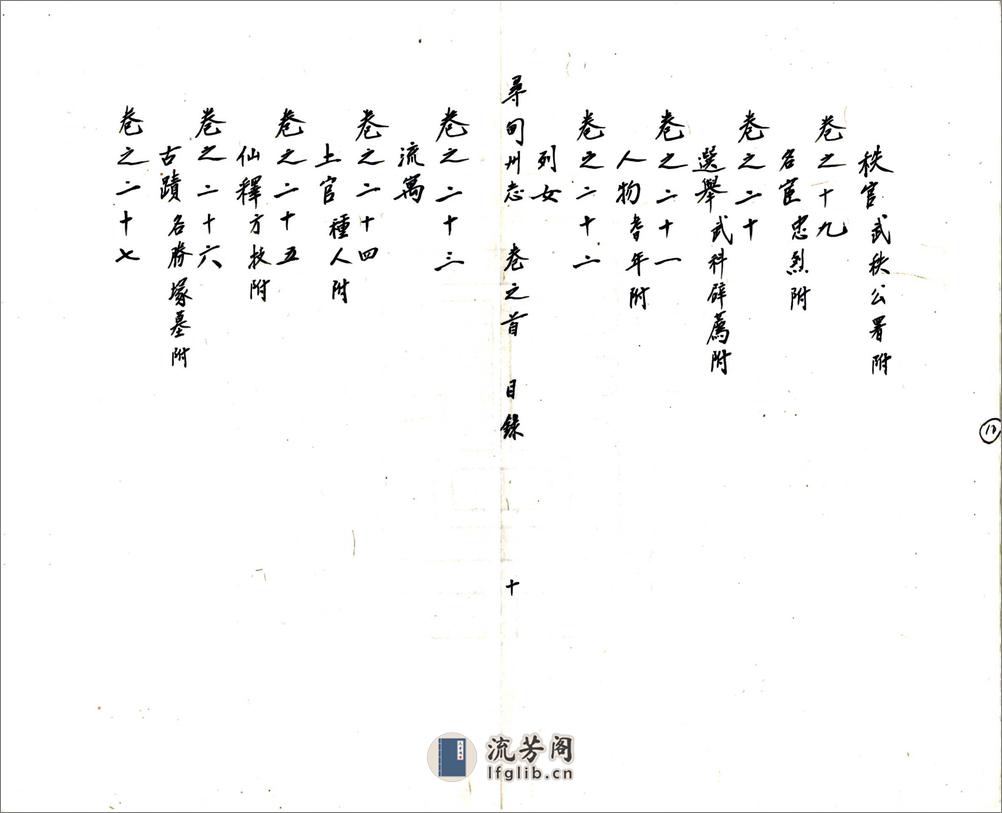 秩官武秩公署附
卷之十九
名宦忠烈附
卷之二十
選舉武科辟薦附
卷之二十一
人物耆年附
卷之二十二
列女
尋甸州志 卷之首 目錄 十
卷之二十三
流寓
卷之二十四
土官種人附
卷之二十五
仙釋方技附
卷之二十六
古蹟名勝塚墓附
卷之二十七
10
流芳阁
lfglib.cn